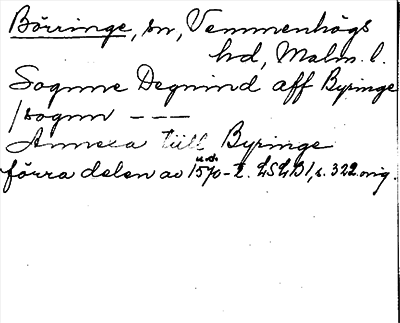 Börringe, sn, Vemmenhögs
hd, Malm. l.
Sognne Degnind aff Byringe
/sognn ---
Annexa till Byringe
förra delen av 1570-t. LSLB1, s. 322 orig.